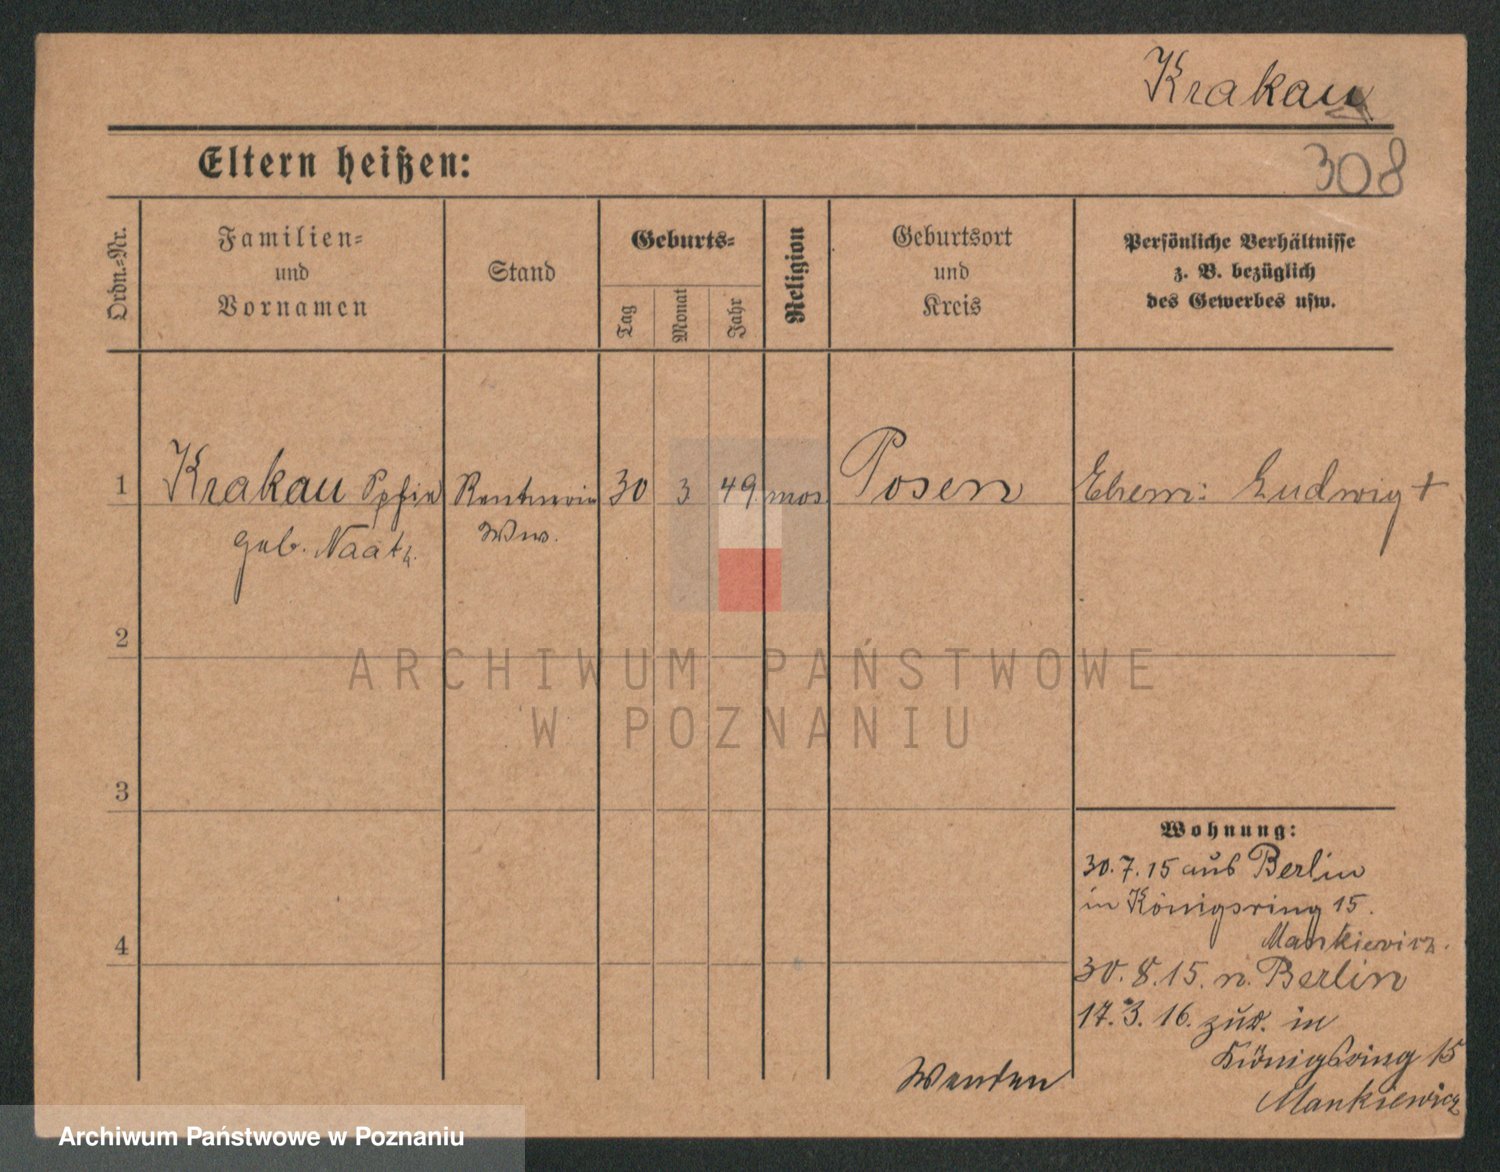 Krakau
Eltern heißen:
308
Ordn.-Nr.
Familien-
und
Vornamen
Stand
Geburts-
Tag
Monat
Jahr
Religion
Geburtsort
und
Kreis
Persönliche Verhältnisse
z. B. bezüglich
des Gewerbes usw.
1 Krakau Rentnerin 30 3 49 mos. Posen Ehem: Ludwig +
geb. Naatz. Ww.
2
3
4
Wohnung:
30.7.15 aus Berlin
in Königsring 15.
Mankiewicz.
30.8.15. n. Berlin
17.3.16. zur. in
Königsring 15
Mankiewicz
Wenden
ARCHIWUM PAŃSTWOWE
W POZNANIU
Archiwum Państwowe w Poznaniu